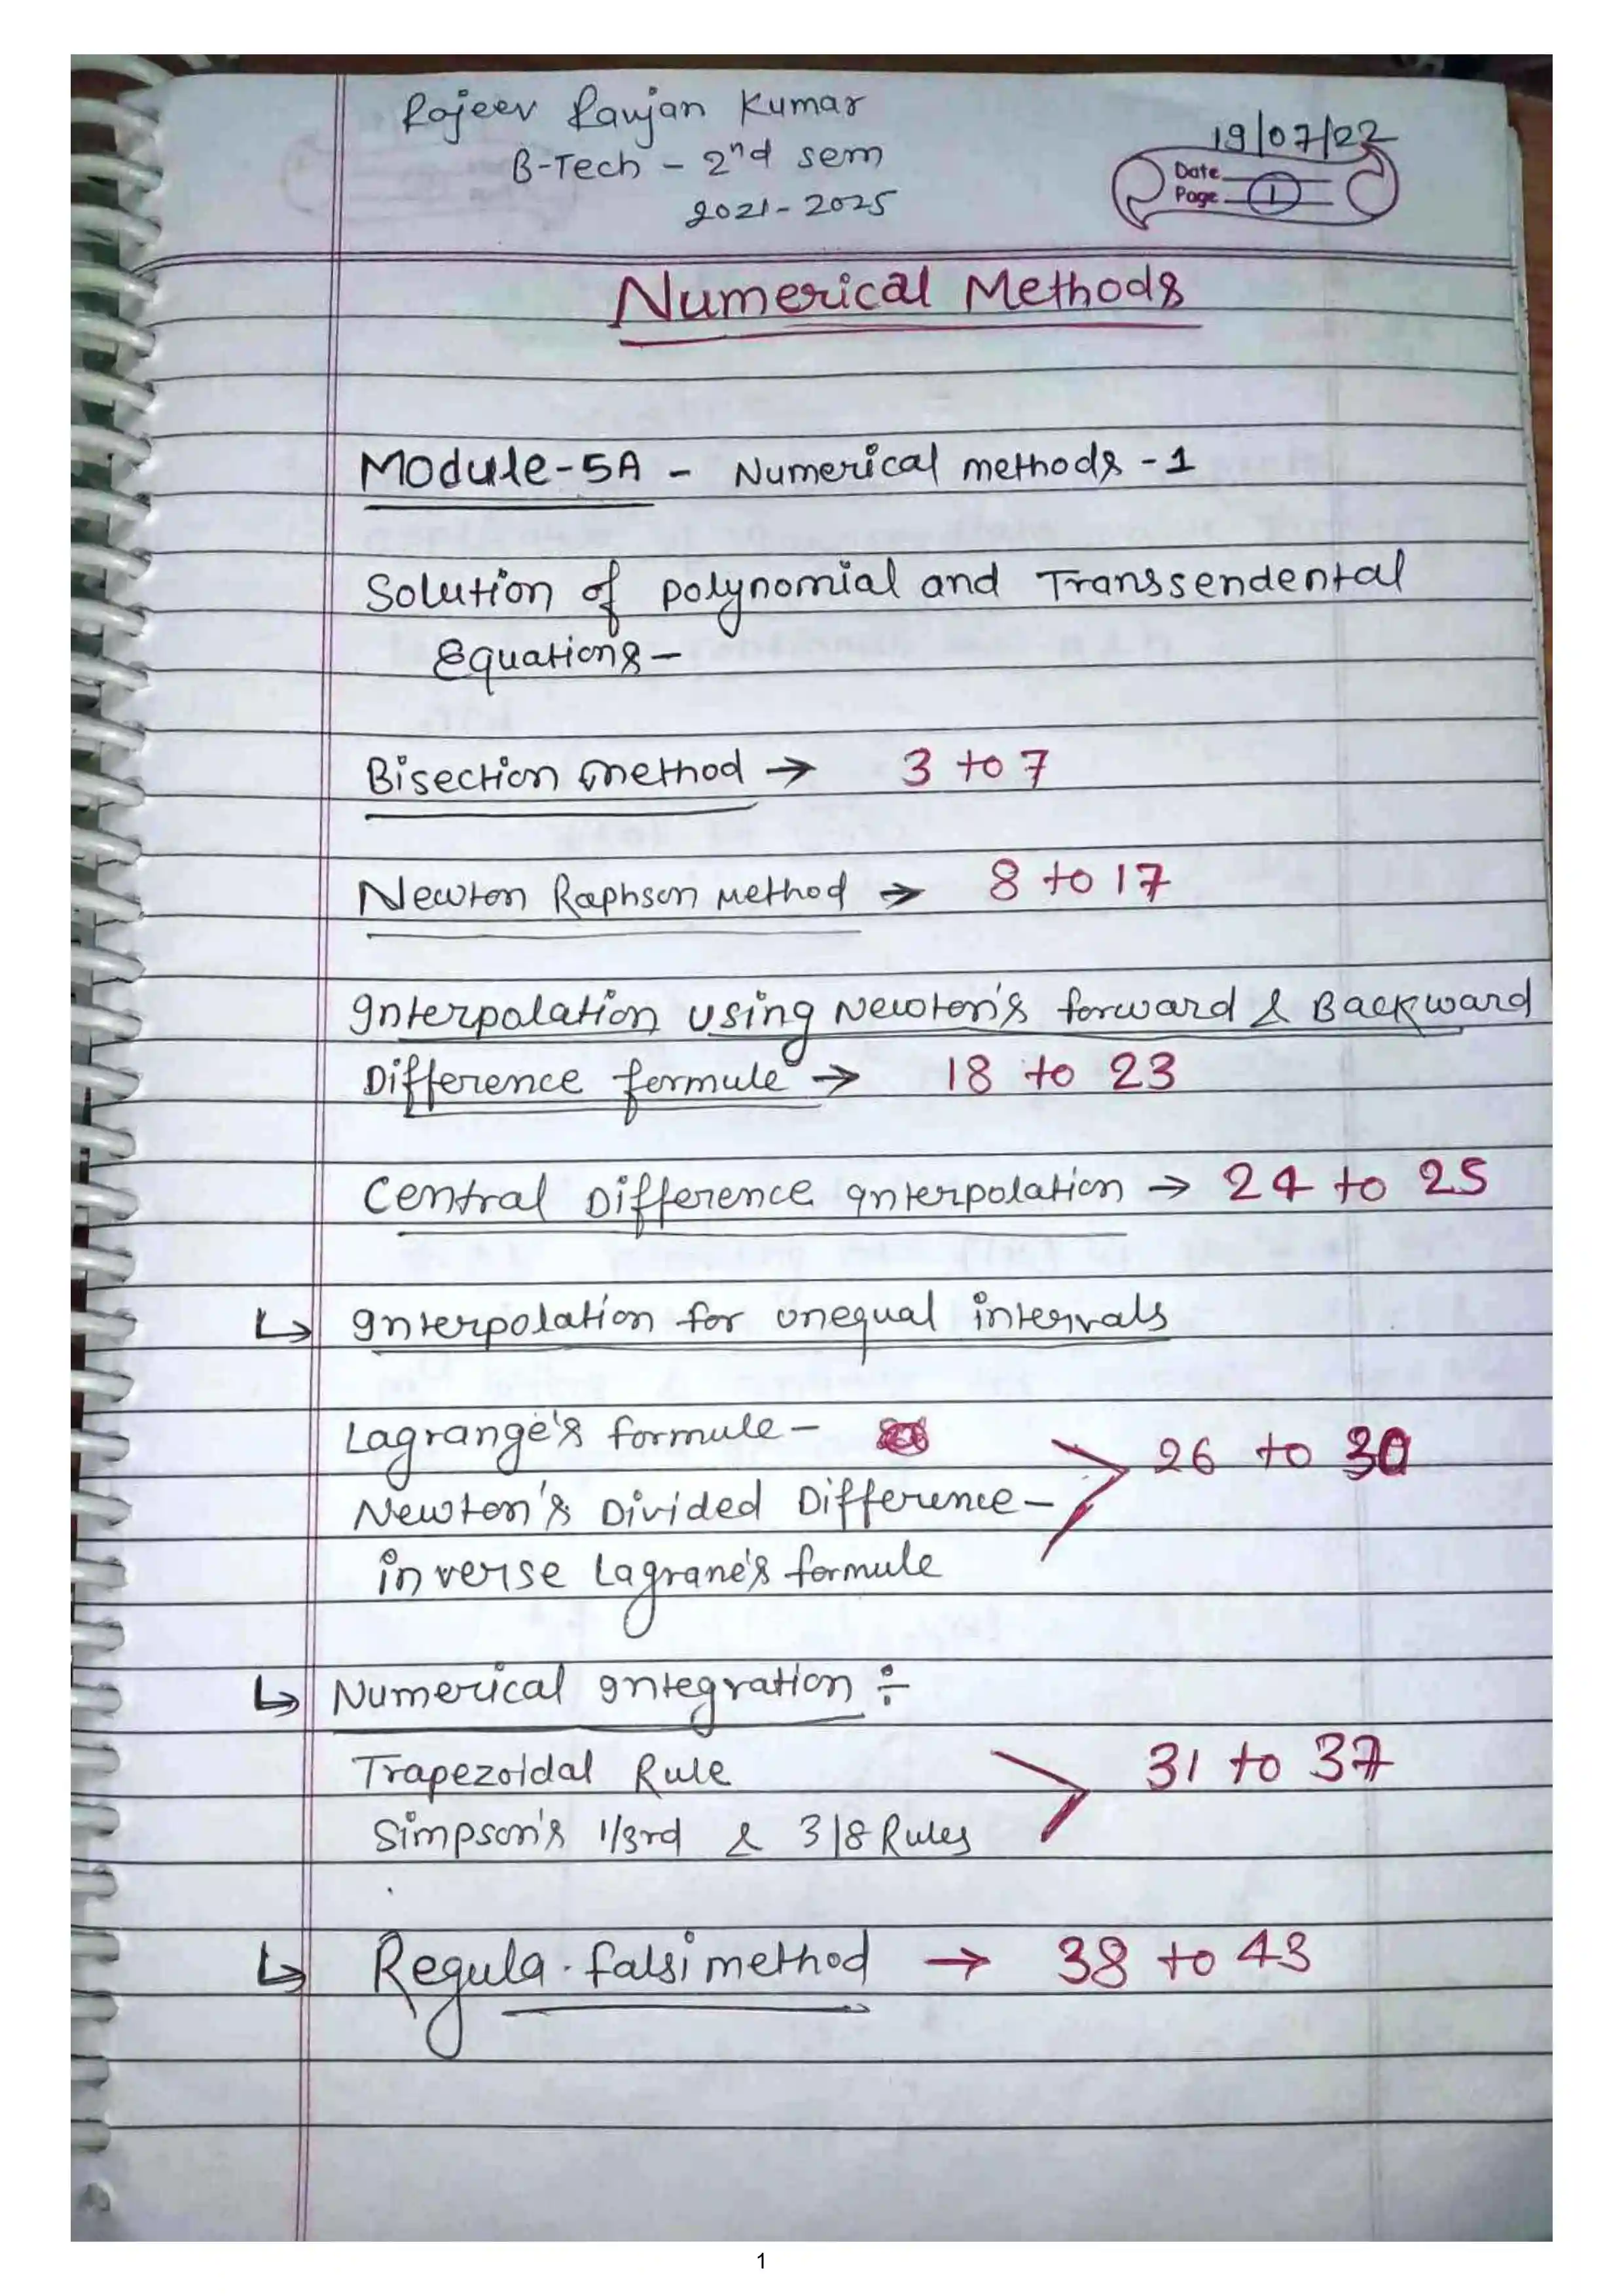 Rajeev Ranjan Kumar
B-Tech - 2nd sem
2021-2025
19/07/22
Date
Page 1
Numerical Methods
Module-5A - Numerical methods - 1
Solution of polynomial and Transsendental
Equations -
Bisection method → 3 to 7
Newton Raphson Method → 8 to 17
Interpolation using Newton's forward & Backward
Difference formule → 18 to 23
Central Difference Interpolation → 24 to 25
↳ Interpolation for unequal intervals
Lagrange's formule - 26 to 30
Newton's Divided Difference -
inverse Lagrane's formule
↳ Numerical Integration ÷
Trapezoidal Rule 31 to 37
Simpson's 1/3rd & 3/8 Rules
↳ Regula-falsi method → 38 to 43
1